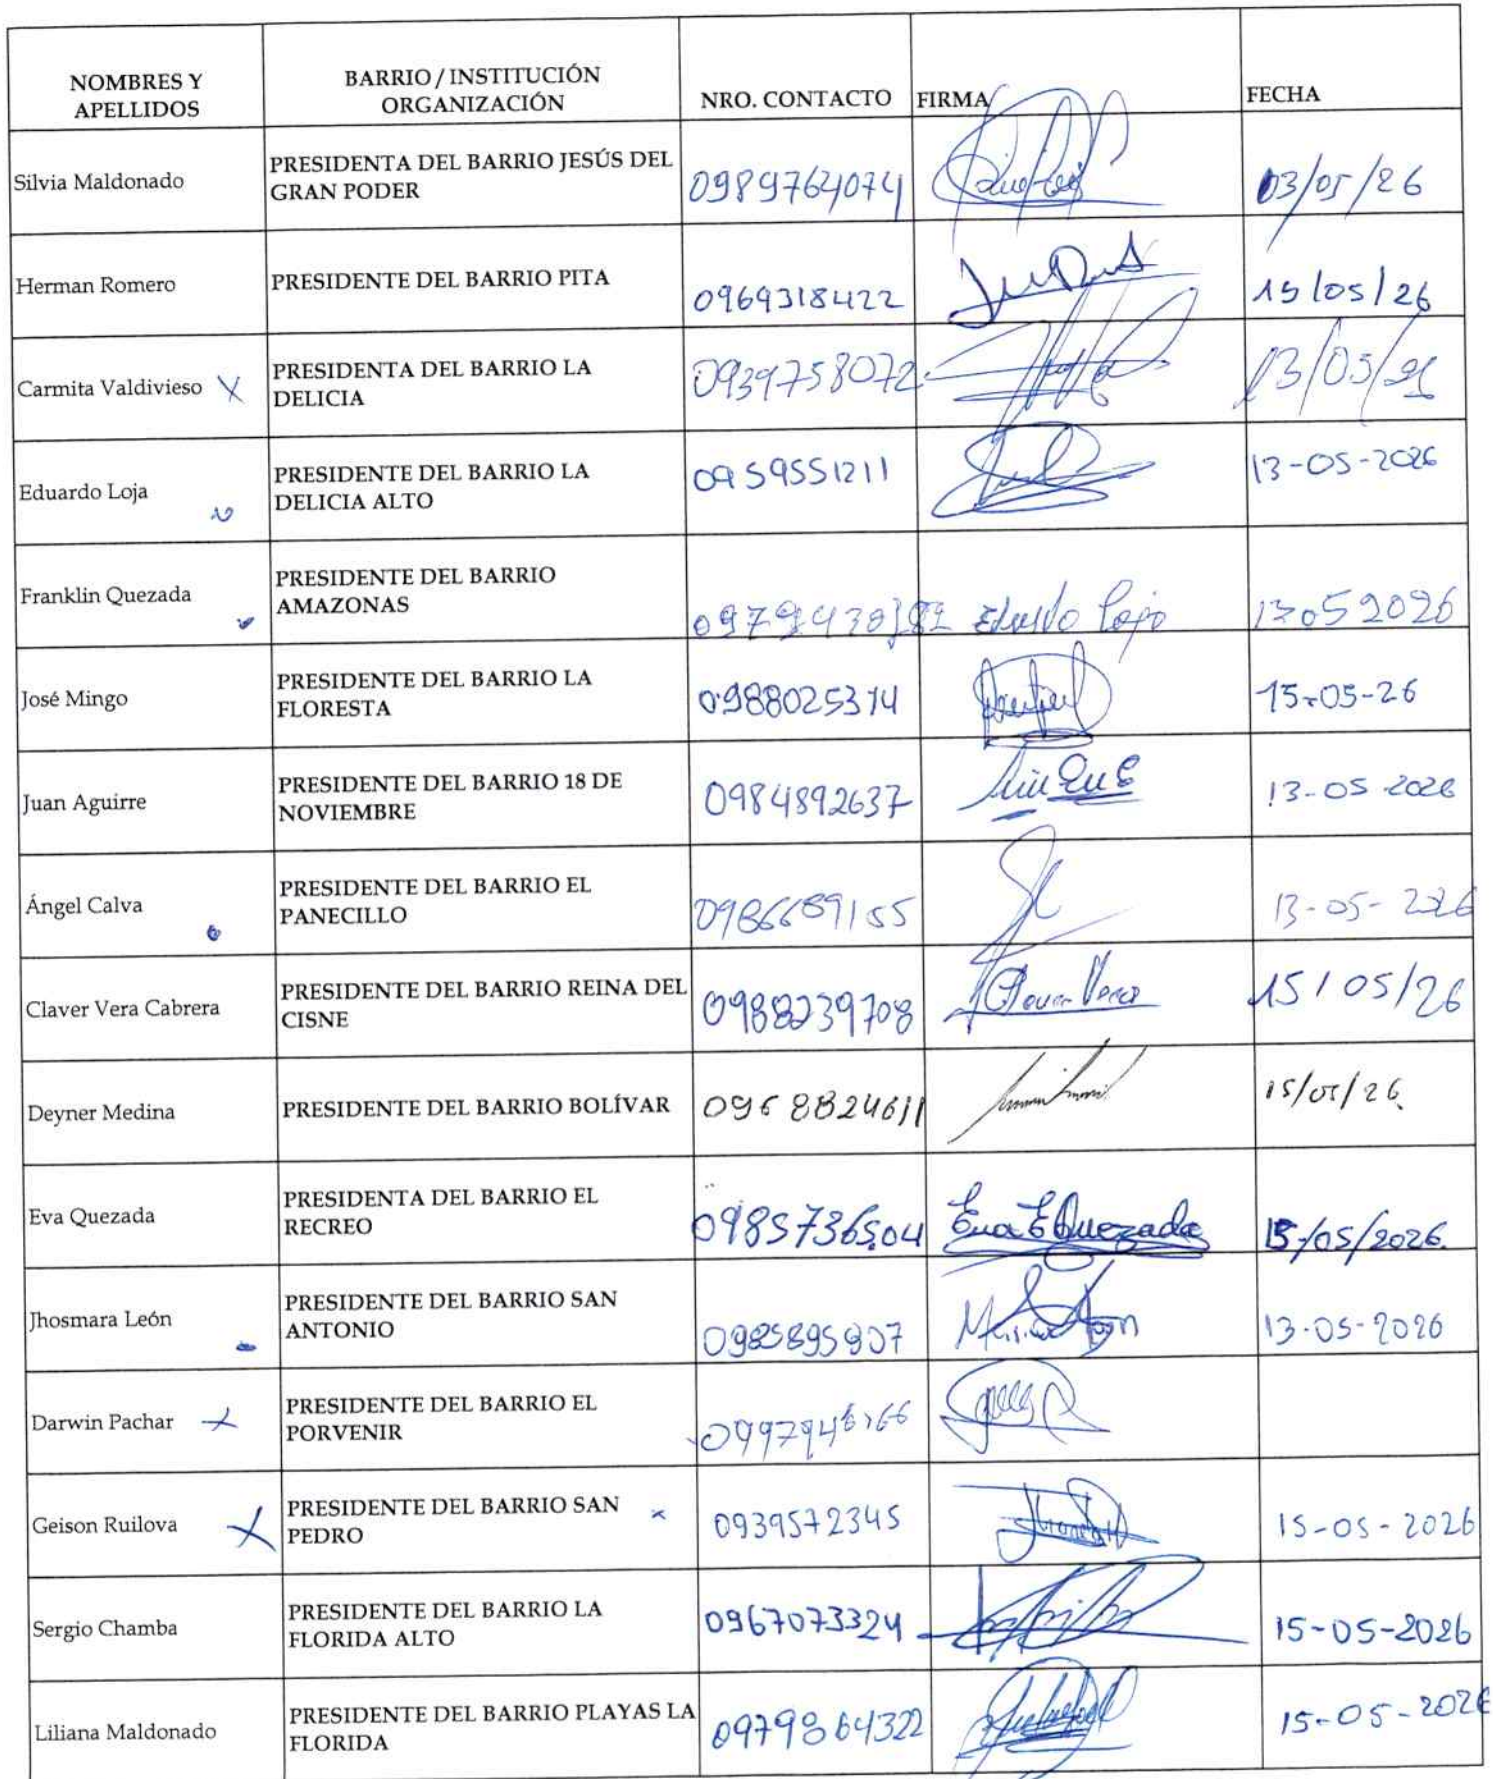 NOMBRES Y
APELLIDOS
BARRIO / INSTITUCIÓN
ORGANIZACIÓN
NRO. CONTACTO
FIRMA
FECHA
Silvia Maldonado
PRESIDENTA DEL BARRIO JESÚS DEL
GRAN PODER
0989764074
03/05/26
Herman Romero
PRESIDENTE DEL BARRIO PITA
0969318422
15/05/26
Carmita Valdivieso X
PRESIDENTA DEL BARRIO LA
DELICIA
0939758072
13/05/26
Eduardo Loja
PRESIDENTE DEL BARRIO LA
DELICIA ALTO
0959551211
13-05-2026
Franklin Quezada
PRESIDENTE DEL BARRIO
AMAZONAS
13052026
José Mingo
PRESIDENTE DEL BARRIO LA
FLORESTA
0988025314
15-05-26
Juan Aguirre
PRESIDENTE DEL BARRIO 18 DE
NOVIEMBRE
0984892637
13-05 2026
Ángel Calva
PRESIDENTE DEL BARRIO EL
PANECILLO
13-05-2026
Claver Vera Cabrera
PRESIDENTE DEL BARRIO REINA DEL
CISNE
0988239708
15/05/26
Deyner Medina
PRESIDENTE DEL BARRIO BOLÍVAR
0968824611
15/05/26.
Eva Quezada
PRESIDENTA DEL BARRIO EL
RECREO
0985736504
Eva E Quezada
15/05/2026.
Jhosmara León
PRESIDENTE DEL BARRIO SAN
ANTONIO
0985895907
13-05-2026
Darwin Pachar X
PRESIDENTE DEL BARRIO EL
PORVENIR
Geison Ruilova X
PRESIDENTE DEL BARRIO SAN x
PEDRO
0939572345
15-05-2026
Sergio Chamba
PRESIDENTE DEL BARRIO LA
FLORIDA ALTO
0967073324
15-05-2026
Liliana Maldonado
PRESIDENTE DEL BARRIO PLAYAS LA
FLORIDA
0979864322
15-05-2026